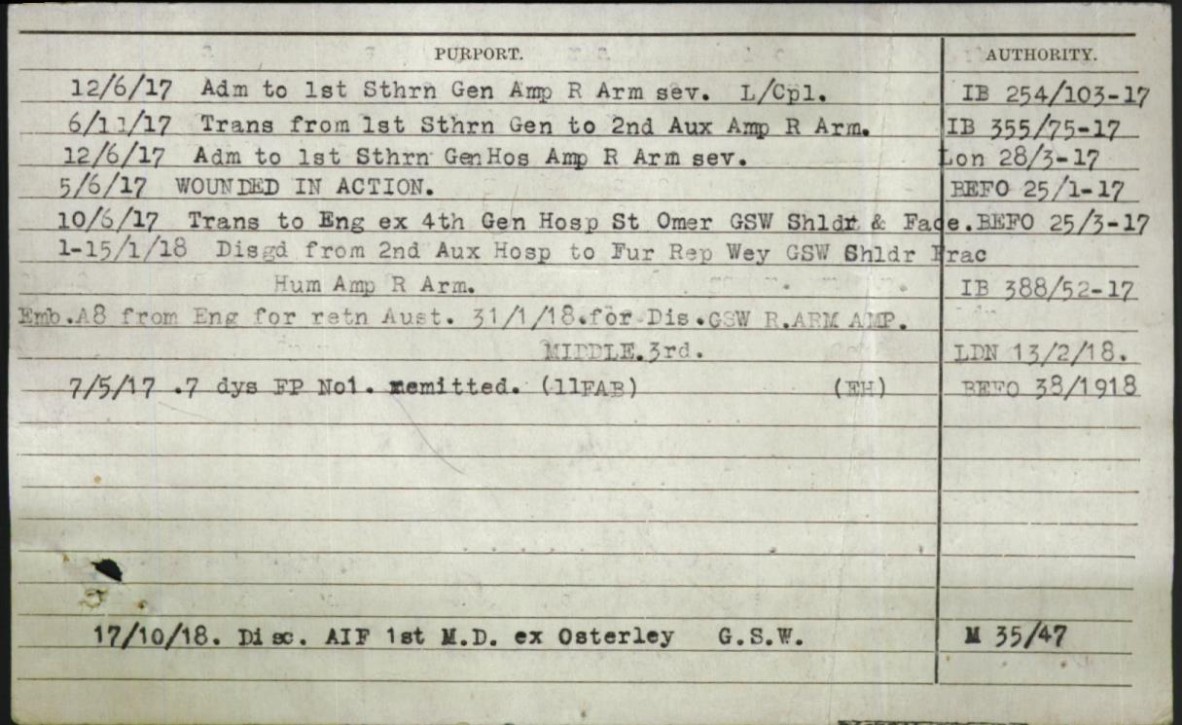 PURPORT. AUTHORITY.
12/6/17 Adm to 1st Sthrn Gen Amp R Arm sev. L/Cpl. IB 254/103-17
6/11/17 Trans from 1st Sthrn Gen to 2nd Aux Amp R Arm. IB 355/75-17
12/6/17 Adm to 1st Sthrn Gen Hos Amp R Arm sev. Lon 28/3-17
5/6/17 WOUNDED IN ACTION. BEFO 25/1-17
10/6/17 Trans to Eng ex 4th Gen Hosp St Omer GSW Shldr & Face. BEFO 25/3-17
1-15/1/18 Disgd from 2nd Aux Hosp to Fur Rep Wey GSW Shldr Frac
Hum Amp R Arm. IB 388/52-17
Emb.A8 from Eng for retn Aust. 31/1/18.for Dis.GSW R.ARM AMP.
MIDDLE.3rd. LDN 13/2/18.
7/5/17 .7 dys FP No1. remitted. (11FAB) (EH) BEFO 38/1918
17/10/18. Disc. AIF 1st M.D. ex Osterley G.S.W. M 35/47